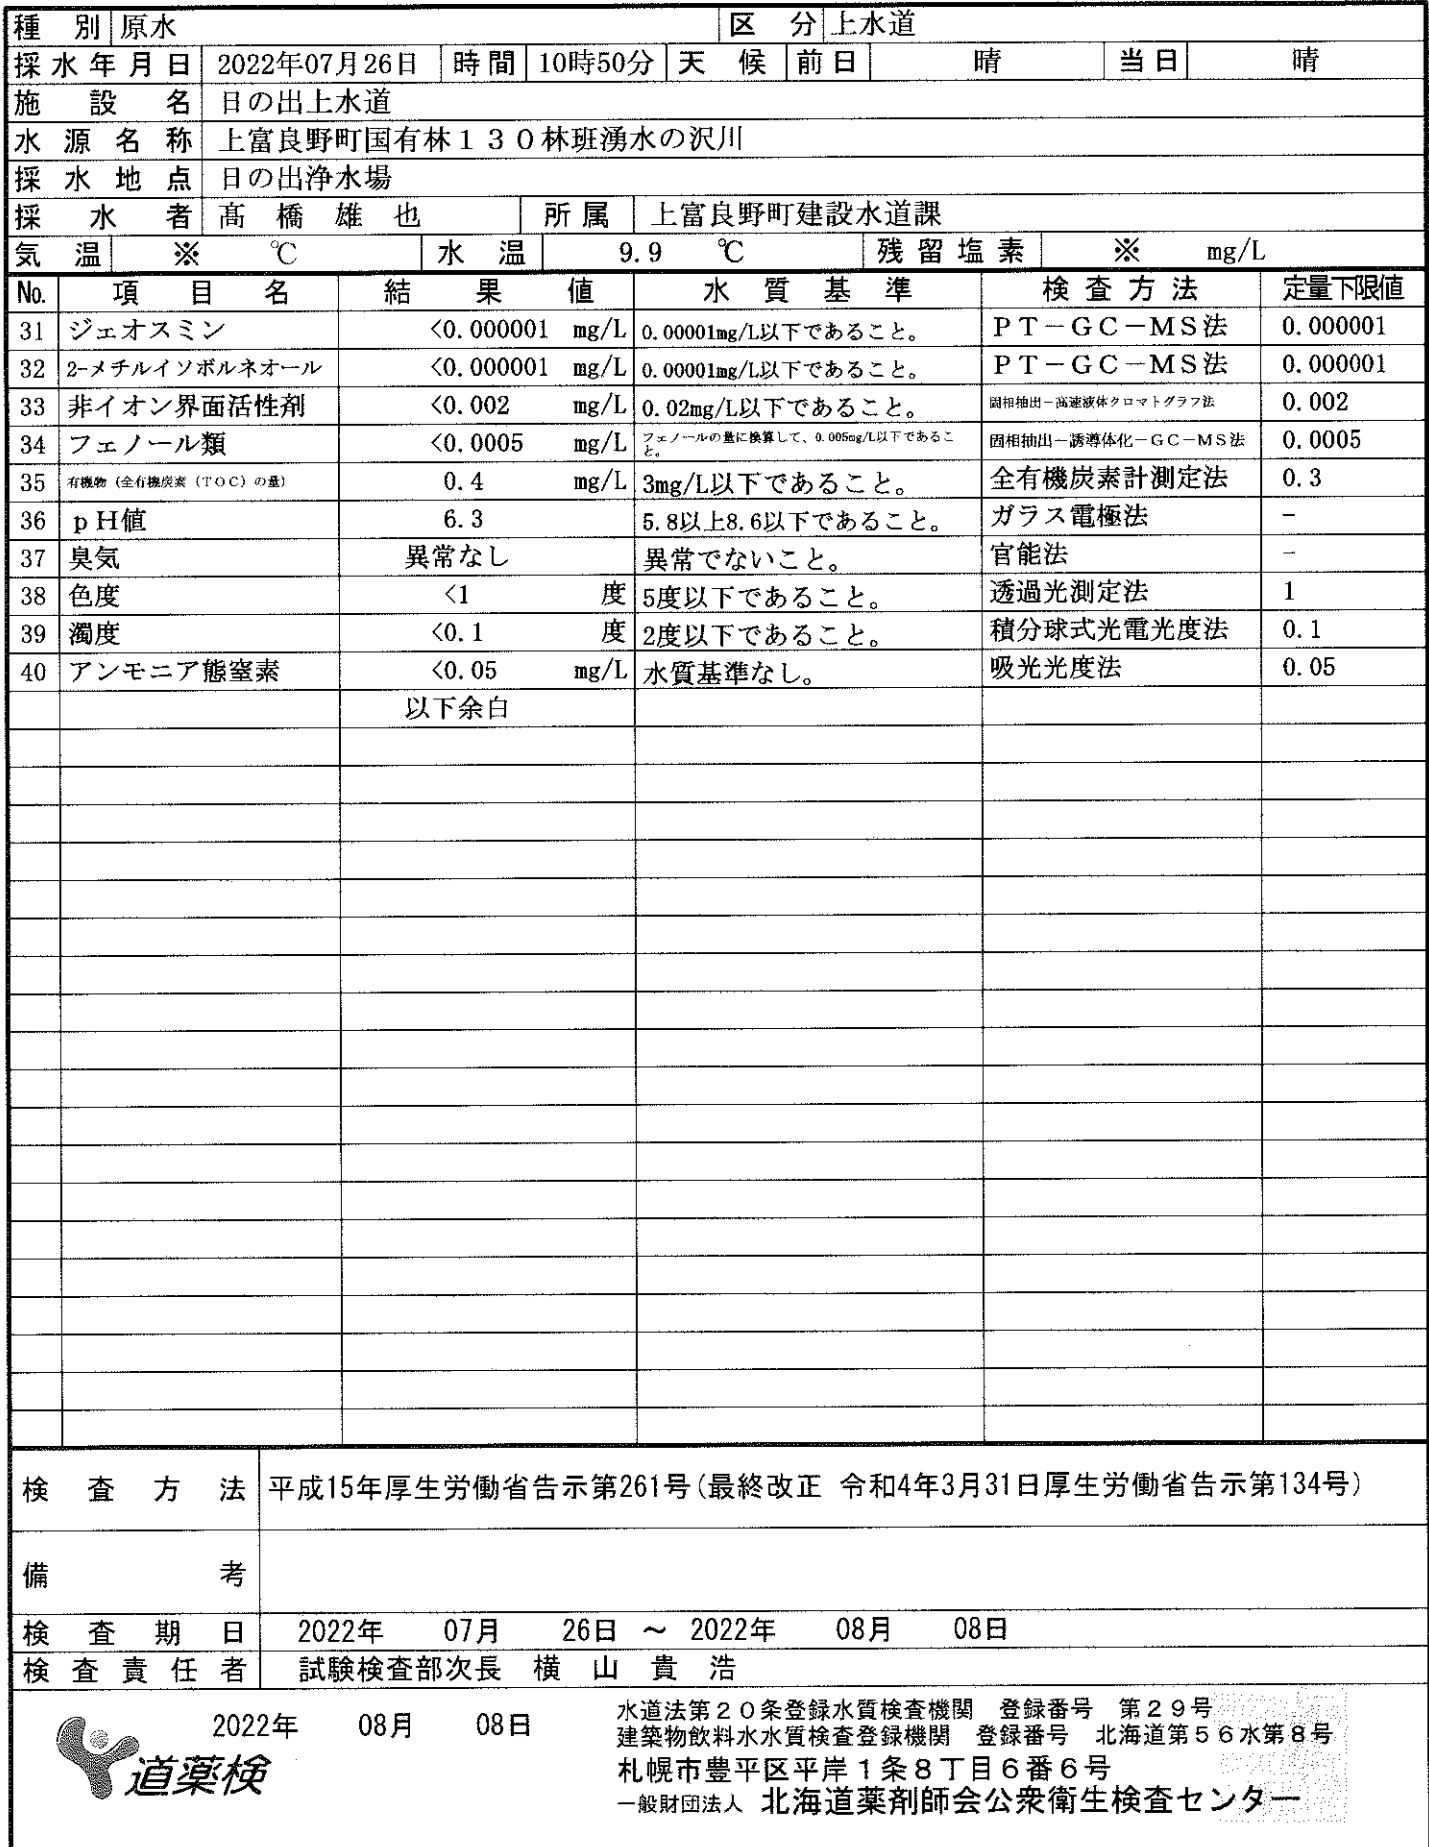 種 別 原水 区 分 上水道
採水年月日 2022年07月26日 時間 10時50分 天 候 前日 晴 当日 晴
施 設 名 日の出上水道
水 源 名 称 上富良野町国有林１３０林班湧水の沢川
採 水 地 点 日の出浄水場
採 水 者 髙 橋 雄 也 所属 上富良野町建設水道課
気 温 ※ ℃ 水 温 9.9 ℃ 残留塩素 ※ mg/L
No. 項 目 名 結 果 値 水 質 基 準 検 査 方 法 定量下限値
31 ジェオスミン <0.000001 mg/L 0.00001mg/L以下であること。 ＰＴ－ＧＣ－ＭＳ法 0.000001
32 2-メチルイソボルネオール <0.000001 mg/L 0.00001mg/L以下であること。 ＰＴ－ＧＣ－ＭＳ法 0.000001
33 非イオン界面活性剤 <0.002 mg/L 0.02mg/L以下であること。 固相抽出－高速液体クロマトグラフ法 0.002
34 フェノール類 <0.0005 mg/L フェノールの量に換算して、0.005mg/L以下であること。 固相抽出－誘導体化－ＧＣ－ＭＳ法 0.0005
35 有機物（全有機炭素（ＴＯＣ）の量） 0.4 mg/L 3mg/L以下であること。 全有機炭素計測定法 0.3
36 ｐＨ値 6.3 5.8以上8.6以下であること。 ガラス電極法 －
37 臭気 異常なし 異常でないこと。 官能法 －
38 色度 <1 度 5度以下であること。 透過光測定法 1
39 濁度 <0.1 度 2度以下であること。 積分球式光電光度法 0.1
40 アンモニア態窒素 <0.05 mg/L 水質基準なし。 吸光光度法 0.05
以下余白
検 査 方 法 平成15年厚生労働省告示第261号(最終改正 令和4年3月31日厚生労働省告示第134号)
備 考
検 査 期 日 2022年 07月 26日 ～ 2022年 08月 08日
検 査 責 任 者 試験検査部次長 横 山 貴 浩
2022年 08月 08日
道薬検
水道法第２０条登録水質検査機関 登録番号 第２９号
建築物飲料水水質検査登録機関 登録番号 北海道第５６水第８号
札幌市豊平区平岸１条８丁目６番６号
一般財団法人 北海道薬剤師会公衆衛生検査センター